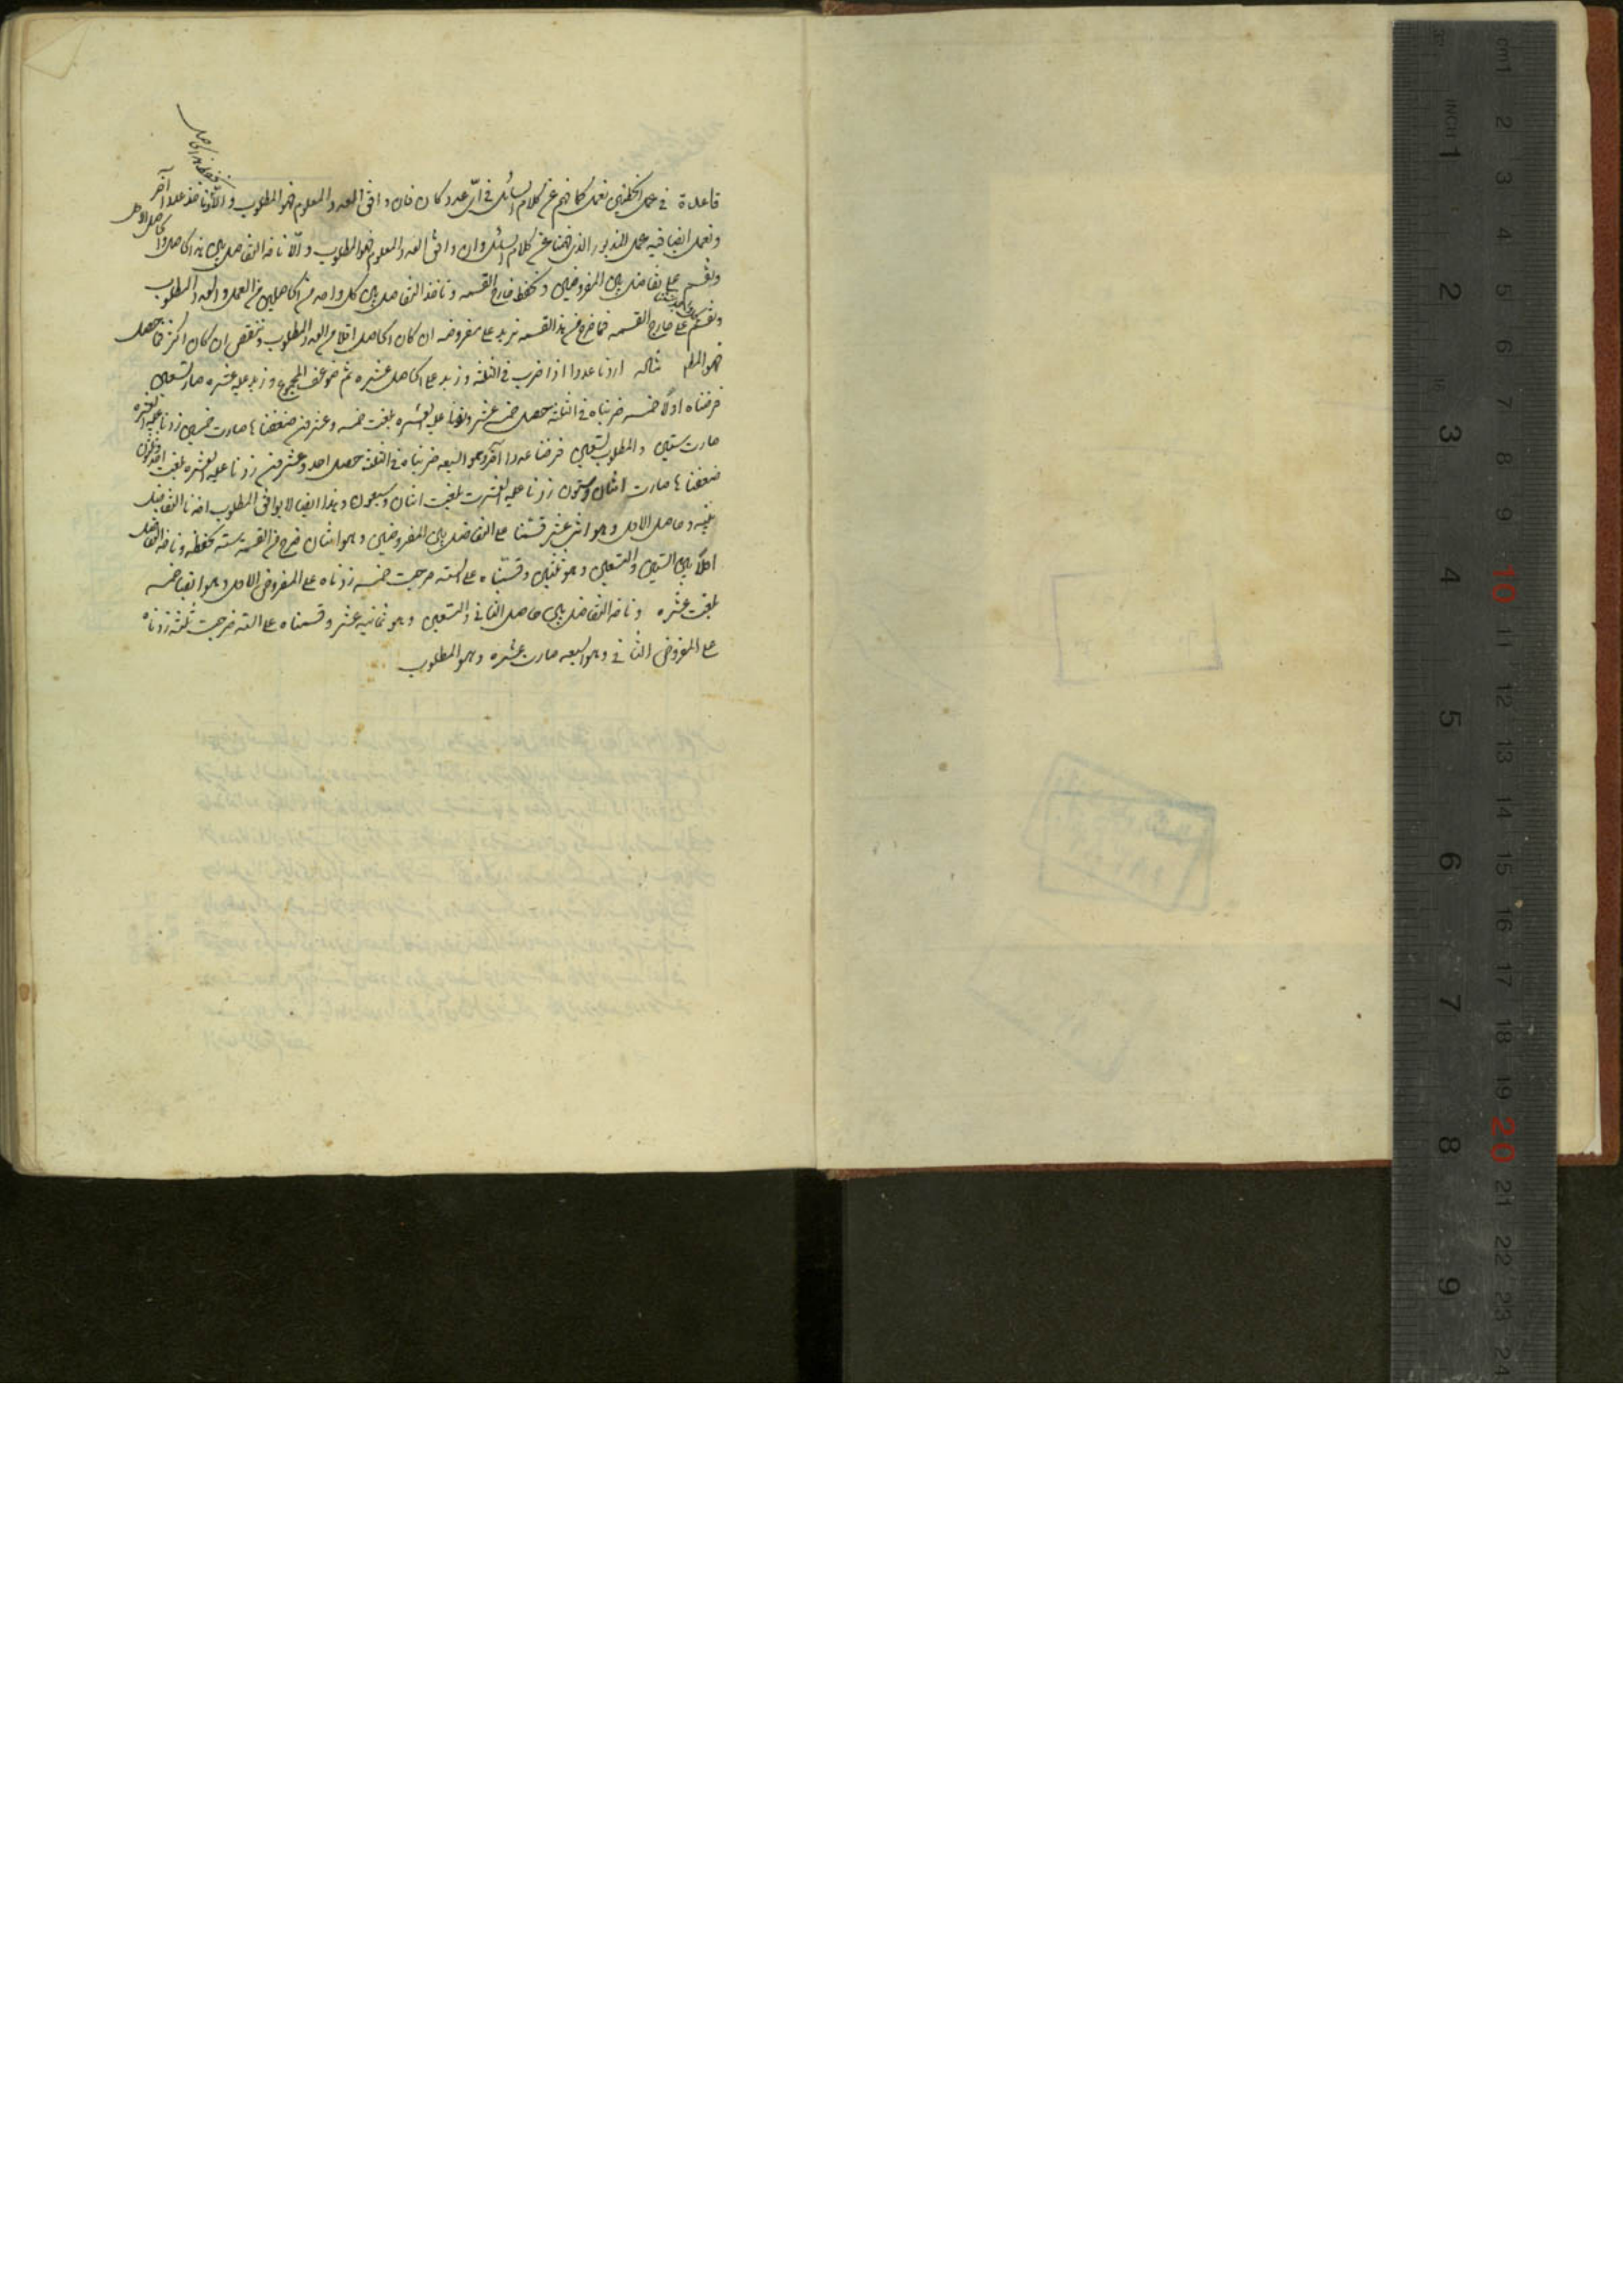 قاعدة في عمل الخطئين نعمل كما فهم عن كلام السائل في اي عدد كان فان وافق العدد المعلوم فهو المطلوب والا ناخذ عددا آخر
ونعمل ايضا فيه عمل المذكور الذي فهمنا عن كلام السائل وان وافق العدد المعلوم فهو المطلوب والا ناخذ التفاضل بين هذا الحاصل والحاصل الاول
ونقسم على تفاضل بين المفروضين ونحفظ خارج القسمه وناخذ التفاضل بين كل واحد من الحاصلين من العمل والعدد المطلوب
ونقسم على خارج القسمه فما خرج من هذا القسمه نزيد على مفروضه ان كان الحاصل اقل من العدد المطلوب وننقص ان كان اكثر فما حصل
فهو المطلـ مثاله اردنا عددا اذا ضرب في الثلثه وزيد على الحاصل عشره ثم ضوعف المجموع وزيد عليه عشره صار تسعين
فرضناه اولا خمسه ضربناه في الثلثه حصل خمسة عشر وزدنا عليه العشره بلغت خمسه وعشرين ضعفناها صارت خمسين زدنا عليه العشره
صارت ستين والمطلوب تسعين فرضنا عددا آخر وهو السبعه ضربناه في الثلثه حصل احد وعشرين زدنا عليه العشره بلغت احد وثلثون
ضعفناها صارت اثنان وستون زدنا عليه العشرت بلغت اثنان وسبعون وهذا ايضا لا يوافق المطلوب اخذنا التفاضل
بينه وحاصل الاول وهو اثنى عشر قسمنا على التفاضل بين المفروضين وهو اثنان خرج من القسمه سته نحفظه وناخذ التفاضل
اولا بين الستين والتسعين وهو ثلثين وقسمناه على السته خرجت خمسه زدناه على المفروض الاول وهو ايضا خمسه
بلغت عشره وناخذ التفاضل بين حاصل الثاني والتسعين وهو ثمانيه عشر وقسمناه على السته خرجت ثلثه زدناه
على المفروض الثاني وهو السبعه صارت عشره وهو المطلوب